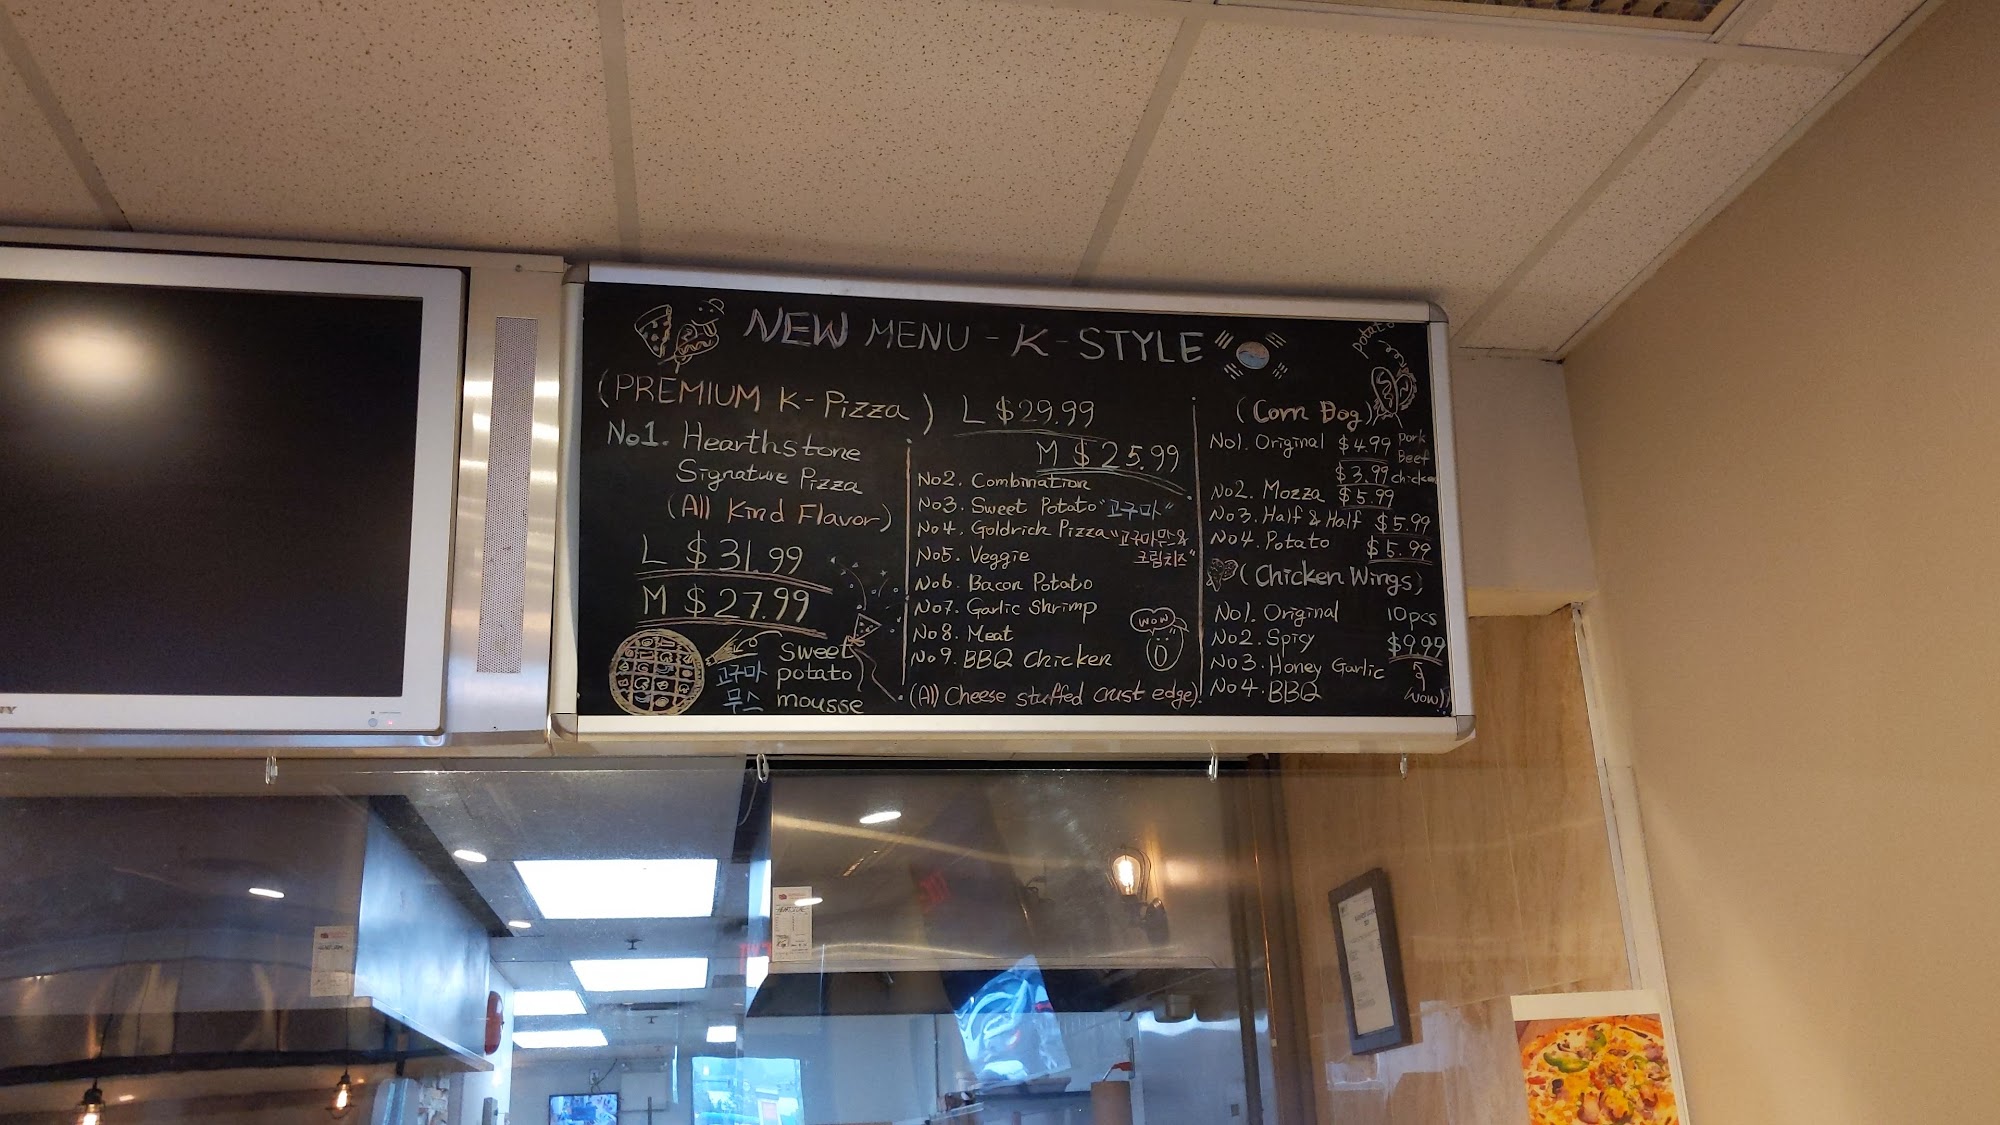 NEW MENU - K - STYLE
(PREMIUM K-Pizza) L $29.99
M $25.99
No1. Hearthstone
Signature Pizza
(All Kind Flavor)
L $31.99
M $27.99
sweet
고구마 potato
무스 mousse
No2. Combination
No3. Sweet Potato "고구마"
No4. Goldrich Pizza "고구마무스&
크림치즈"
No5. Veggie
No6. Bacon Potato
No7. Garlic Shrimp
No8. Meat
No9. BBQ Chicken
WOW
(All Cheese stuffed crust edge)
potato
(Corn Dog)
No1. Original $4.99 pork
Beef
$3.99 chicken
No2. Mozza $5.99
No3. Half & Half $5.99
No4. Potato $5.99
(Chicken Wings)
No1. Original 10pcs
No2. Spicy $9.99
No3. Honey Garlic
No4. BBQ
WOW!!